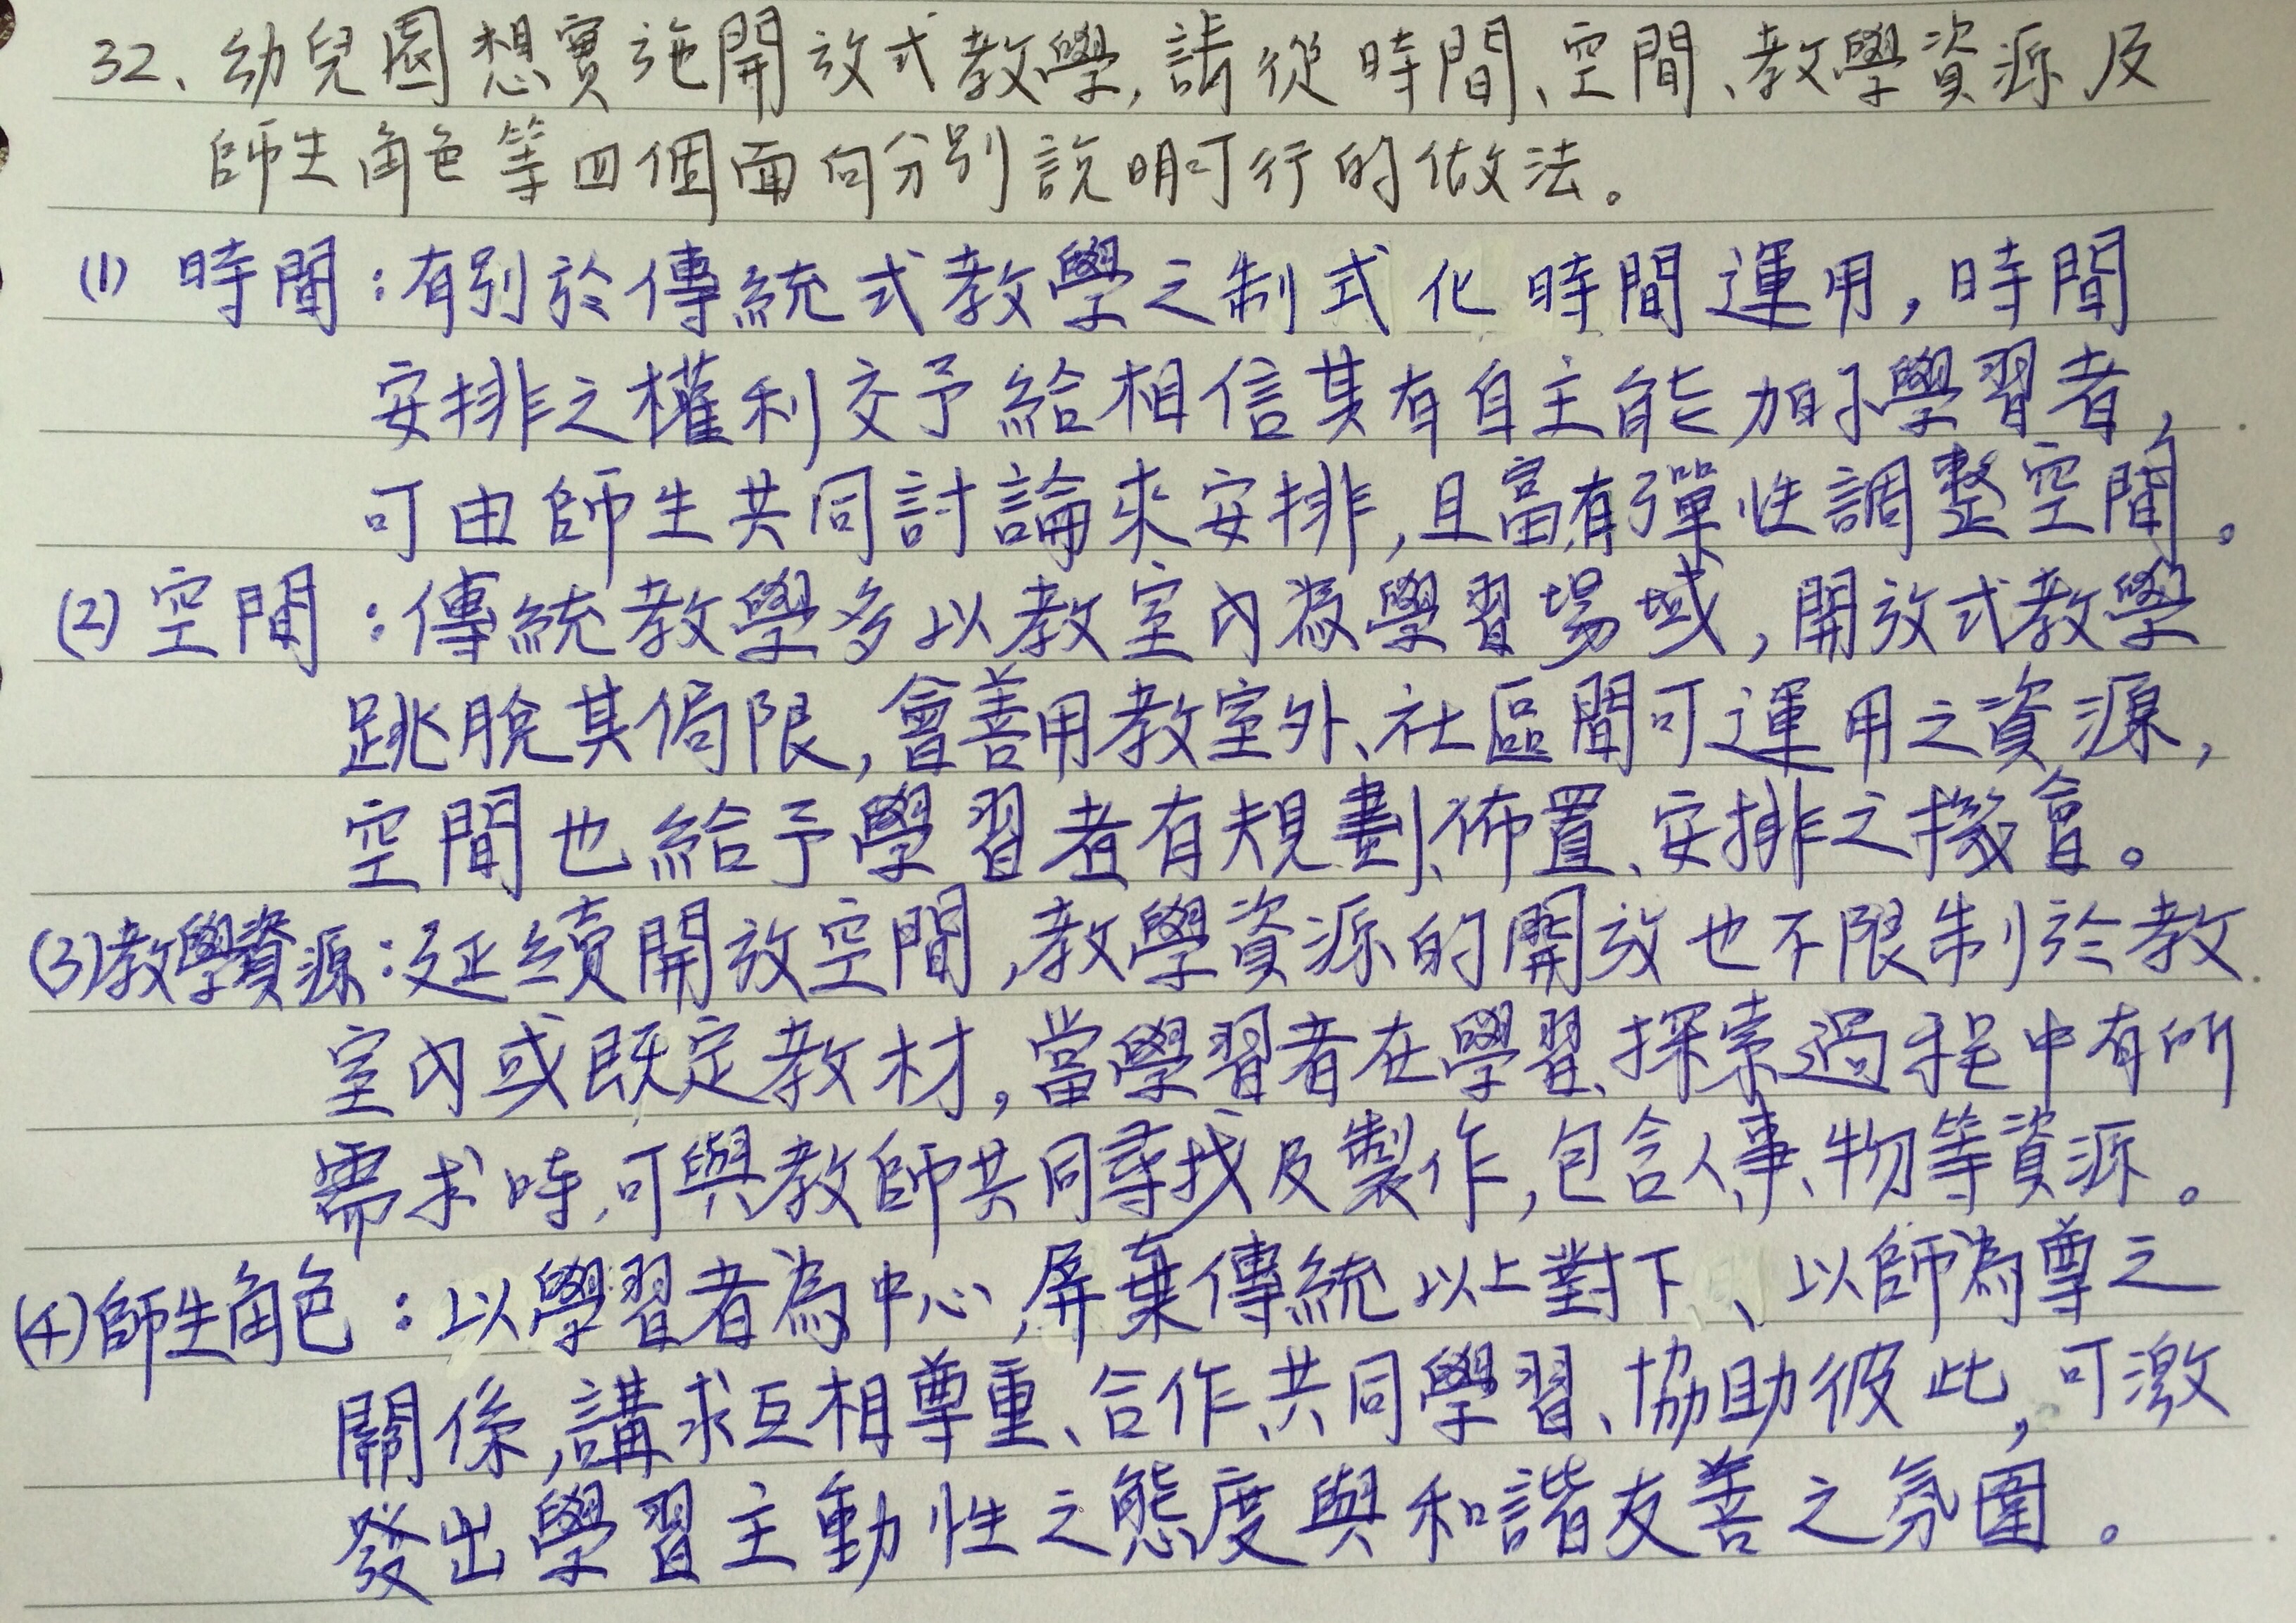 32、幼兒園想實施開放式教學,請從時間、空間、教學資源及
師生角色等四個面向分別說明可行的做法。
(1) 時間:有別於傳統式教學之制式化時間運用,時間
安排之權利交予給相信其有自主能加的學習者,
可由師生共同討論來安排,且富有彈性調整空間。
(2) 空間:傳統教學多以教室內為學習場域,開放式教學
跳脫其侷限,會善用教室外、社區間可運用之資源,
空間也給予學習者有規劃、佈置、安排之機會。
(3)教學資源:延續開放空間,教學資源的開放也不限制於教
室內或既定教材,當學習者在學習、探索過程中有所
需求時,可與教師共同尋找及製作,包含人、事、物等資源。
(4)師生角色:以學習者為中心,屏棄傳統以上對下、以師為尊之
關係,講求互相尊重、合作、共同學習、協助彼此,可激
發出學習主動性之態度與和諧友善之氛圍。